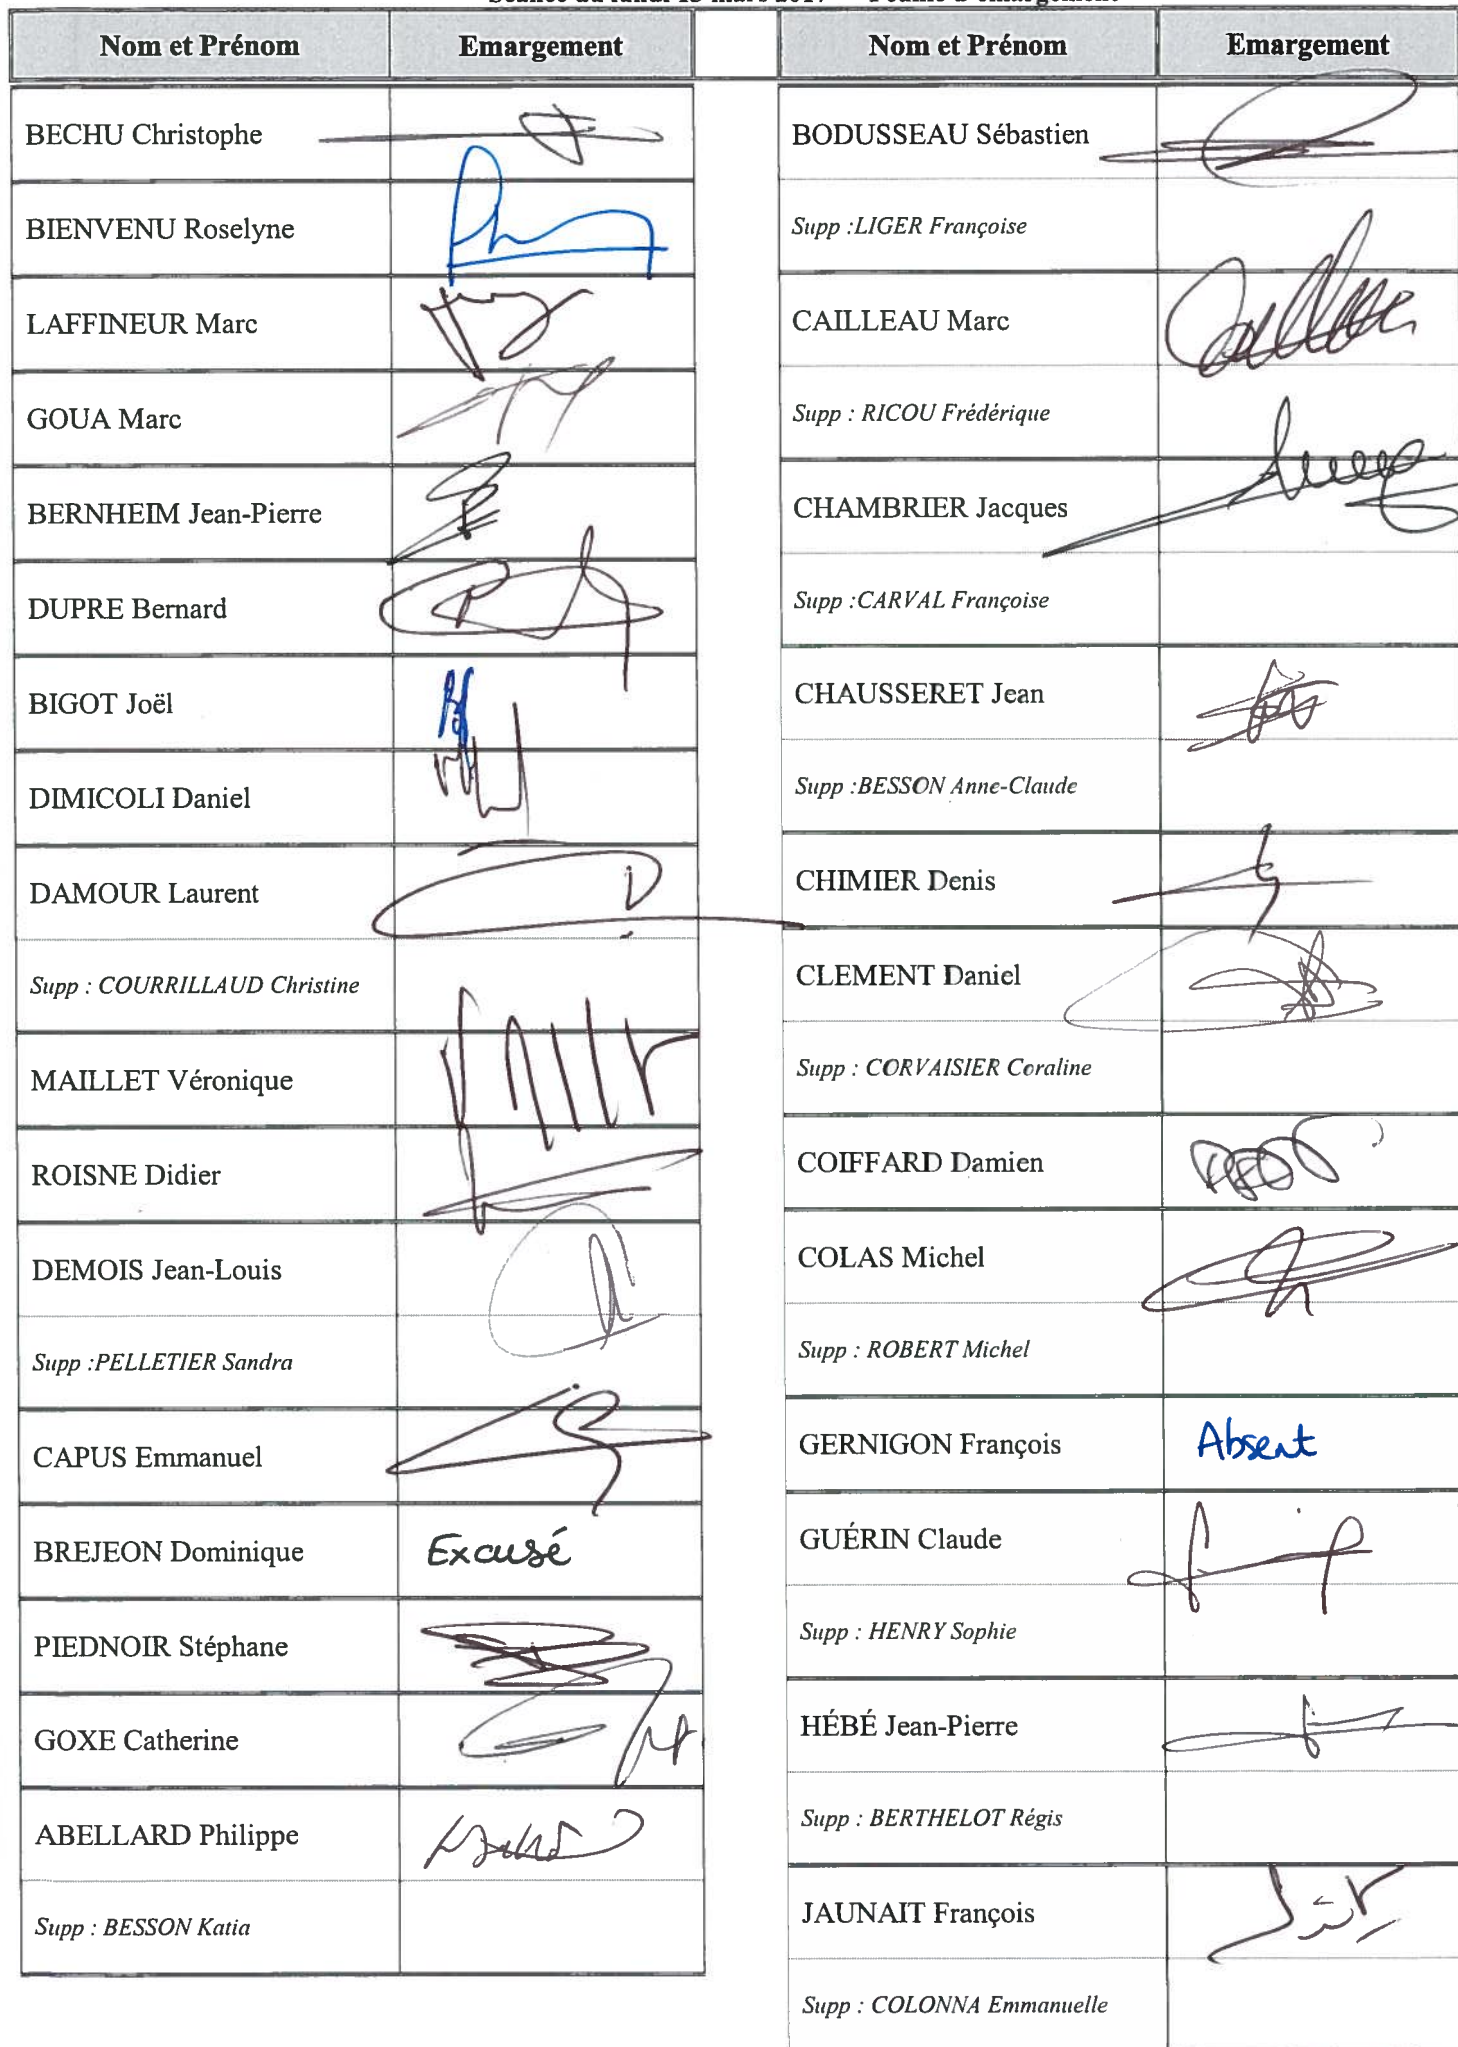 Séance du lundi 13 mars 2017
Nom et Prénom Emargement
BECHU Christophe
BIENVENU Roselyne
LAFFINEUR Marc
GOUA Marc
BERNHEIM Jean-Pierre
DUPRE Bernard
BIGOT Joël
DIMICOLI Daniel
DAMOUR Laurent
Supp : COURRILLAUD Christine
MAILLET Véronique
ROISNE Didier
DEMOIS Jean-Louis
Supp :PELLETIER Sandra
CAPUS Emmanuel
BREJEON Dominique Excusé
PIEDNOIR Stéphane
GOXE Catherine
ABELLARD Philippe
Supp : BESSON Katia
Nom et Prénom Emargement
BODUSSEAU Sébastien
Supp :LIGER Françoise
CAILLEAU Marc
Supp : RICOU Frédérique
CHAMBRIER Jacques
Supp :CARVAL Françoise
CHAUSSERET Jean
Supp :BESSON Anne-Claude
CHIMIER Denis
CLEMENT Daniel
Supp : CORVAISIER Coraline
COIFFARD Damien
COLAS Michel
Supp : ROBERT Michel
GERNIGON François Absent
GUÉRIN Claude
Supp : HENRY Sophie
HÉBÉ Jean-Pierre
Supp : BERTHELOT Régis
JAUNAIT François
Supp : COLONNA Emmanuelle